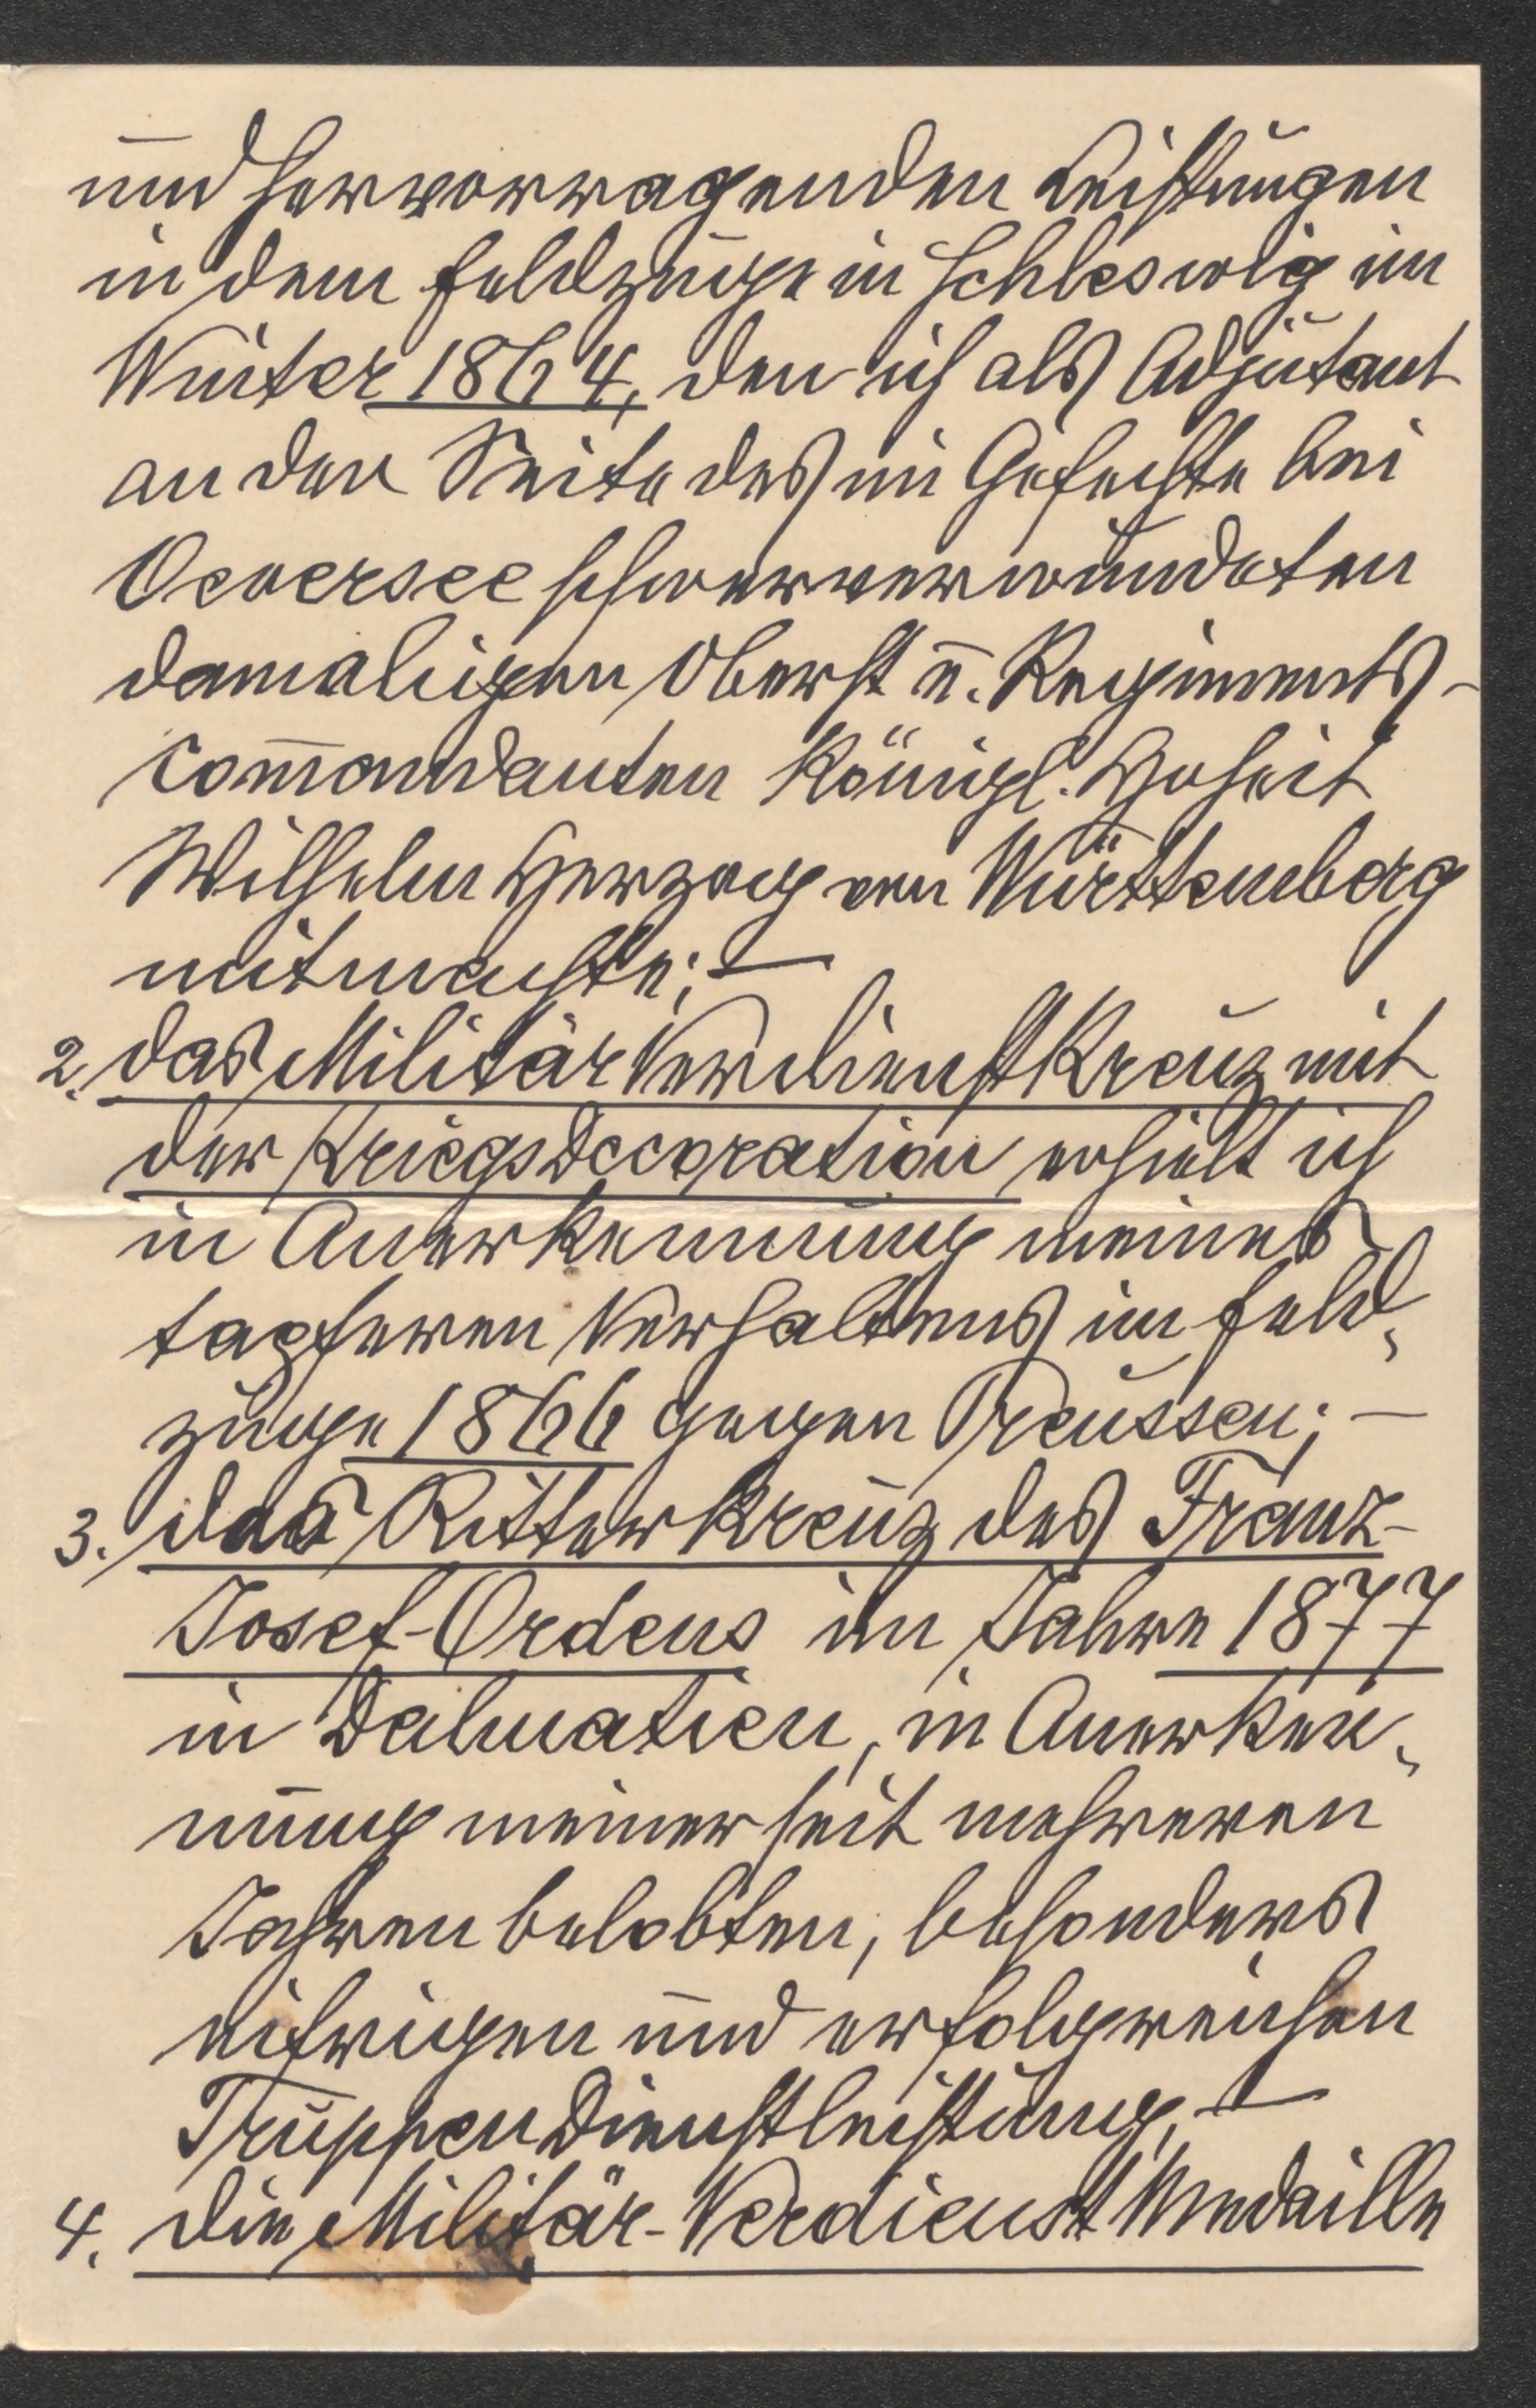 und hervorragenden Leistungen
in dem Feldzuge in Schleswig im
Winter 1864, den ich als Adjutant
an der Seite des im Gefechte bei
Oeversee schwerverwundeten
damaligen Oberst u. Regiments-
com̄andanten Königl. Hoheit
Wilhelm Herzog von Württemberg
mitmachte; —
2. das Militär Verdienst Kreuz mit
der KriegsDecoration erhielt ich
in Anerkennung meines
tapferen Verhaltens im Feld-
zuge 1866 gegen Preussen; —
3. das Ritter Kreuz des Franz-
Josef-Ordens im Jahre 1877
in Dalmatien, in Anerken-
nung meiner seit mehreren
Jahren belobten, besonders
eifrigen und erfolgreichen
TruppenDienstleistung, —
4. die Militär-Verdienst Medaille